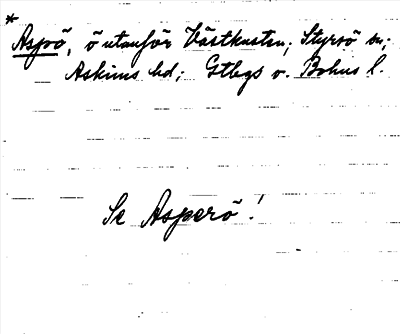 * Aspö, ö utanför Västkusten; Styrsö sn;
Askims hd; Gtbgs o. Bohus l.
Se Asperö!